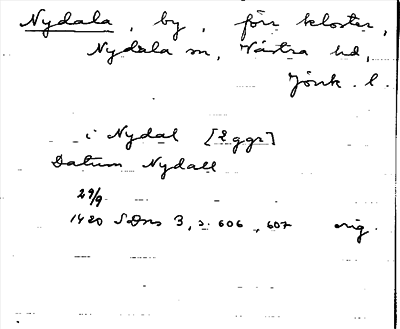 Nydala, by, förr kloster,
Nydala sn, Västra hd,
Jönk. l.
i Nydal [2 ggr]
Datum Nydall
29/9
1420 SDns 3, s. 606, 607 orig.